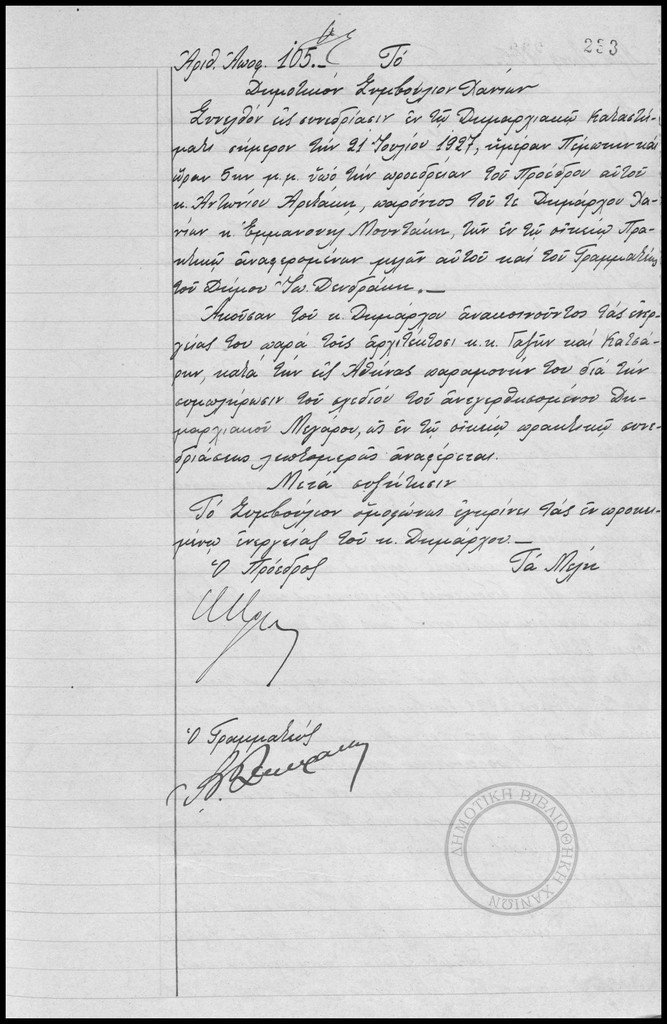 233
Ἀριθ. Ἀποφ. 105.- Τό
Δημοτικόν Συμβούλιον Χανίων
Συνελθόν εἰς συνεδρίασιν ἐν τῷ Δημαρχιακῷ Καταστή-
ματι σήμερον τήν 21 Ἰουλίου 1927, ἡμέραν Πέμπτην καί
ὥραν 5ην μ.μ. ὑπό τήν προεδρείαν τοῦ Προέδρου αὐτοῦ
κ. Ἀντωνίου Αριτάκη, παρόντος τοῦ τε Δημάρχου Χα-
νίων κ. Ἐμμανουήλ Μουντάκη, τῶν ἐν τῷ οἰκείῳ Πρα-
κτικῷ ἀναφερομένων μελῶν αὐτοῦ καί τοῦ Γραμματέως
τοῦ Δήμου Ἰω. Δενδράκη.-
Ἀκοῦσαν τοῦ κ. Δημάρχου ἀνακοινοῦντος τάς ἐνερ-
γείας του παρά τοῖς ἀρχιτέκτοσι κ.κ. καί Κατσά-
ρων, κατά τήν εἰς Ἀθήνας παραμονήν του διά τήν
συμπλήρωσιν τοῦ σχεδίου τοῦ ἀνεγερθησομένου Δη-
μαρχιακοῦ Μεγάρου, ὡς ἐν τῷ οἰκείῳ πρακτικῷ συνε-
δριάσεως λεπτομερῶς ἀναφέρεται.
Μετά συζήτησιν
Τό Συμβούλιον ὁμοφώνως ἐγκρίνει τάς ἐν προκει-
μένῳ ἐνεργείας τοῦ κ. Δημάρχου.-
Ὁ Πρόεδρος Τά Μέλη
Ὁ Γραμματεύς
ΔΗΜΟΤΙΚΗ ΒΙΒΛΙΟΘΗΚΗ ΧΑΝΙΩΝ